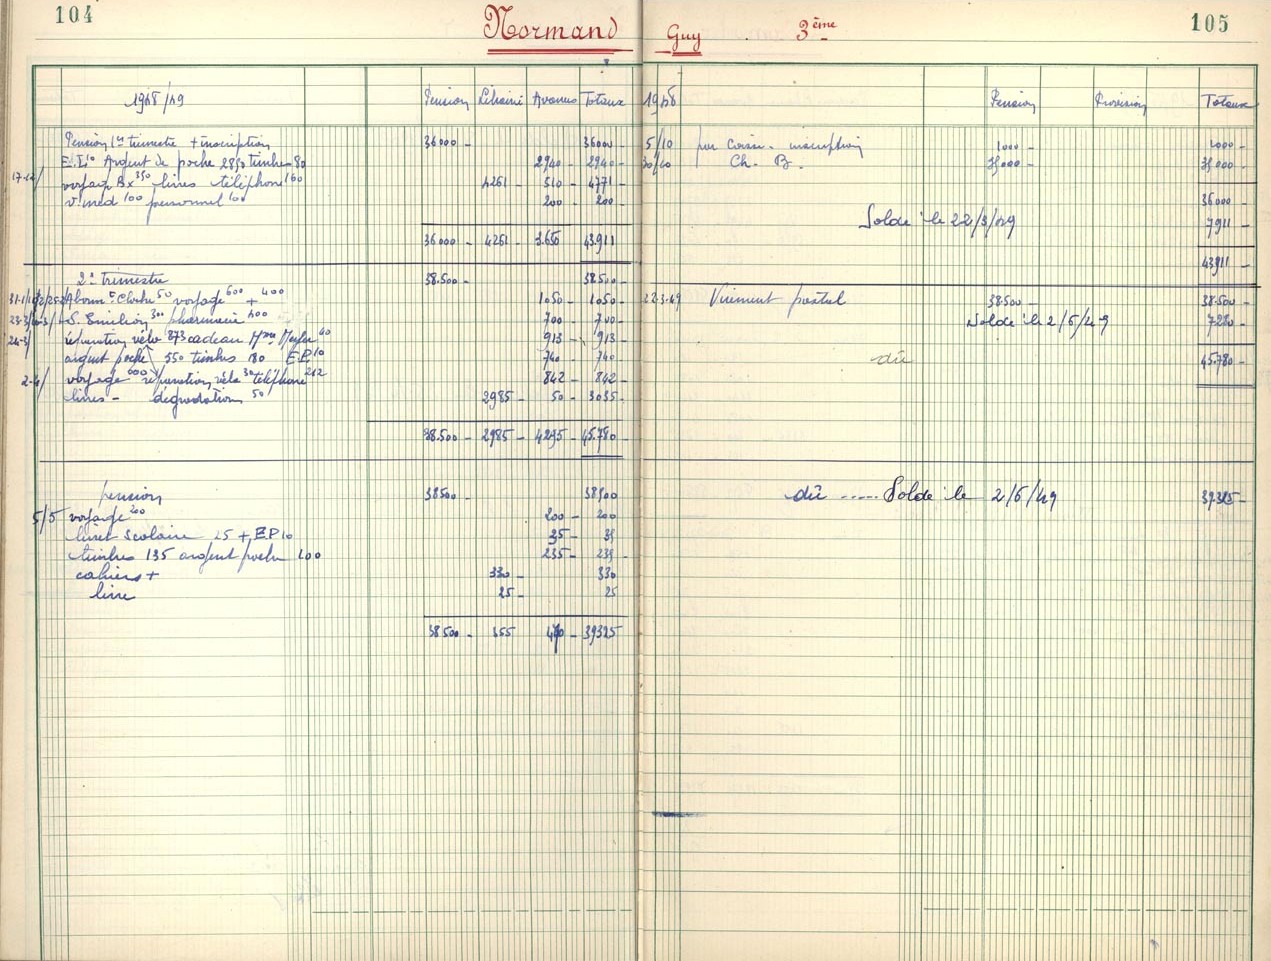 104
Normand Guy 3ème
105
1948/49 Pension Librairie Avances Totaux
Pension 1er trimestre + inscription 36000 - 36000 -
E.P.10 Argent de poche 2850 timbres 80 2940 - 2940 -
17-12/ voyage Bx 350 livres téléphone 160 4261 - 510 - 4771 -
v. med 100 personnel 100 200 - 200 -
36000 - 4261 - 3.650 43911
2e trimestre 38.500 - 38500 -
voyage 600 + 400 1050 - 1050 -
S. Emilion 300 pharmacie 400 700 - 700 -
réparation vélo 873 cadeau 40 913 - 913 -
argent poche 550 timbres 180 E.P.10 740 - 740 -
2-4/ voyage 600 réparation vélo 30 téléphone 212 842 - 842 -
livres - dégradations 50 2985 - 50 - 3035 -
38.500 - 2985 - 4295 - 45.780 -
pension 38500 - 38500
5/5 voyage 200 200 - 200
livret scolaire 25 + E.P.10 35 - 35
timbres 135 argent poche 100 235 - 235 -
cahiers + 330 - 330
livre 25 - 25
38500 - 355 470 - 39325
1948 Pension Provision Totaux
5/10 inscription 1000 - 1000 -
30/10 Ch. B. 35000 - 35000 -
36000 -
Solde le 22/3/49 7911 -
43911 -
22-3-49 Virement postal 38500 - 38.500 -
Solde le 2/6/49 7280 -
dû 45.780 -
dû ..... Solde le 2/6/49 39.325 -